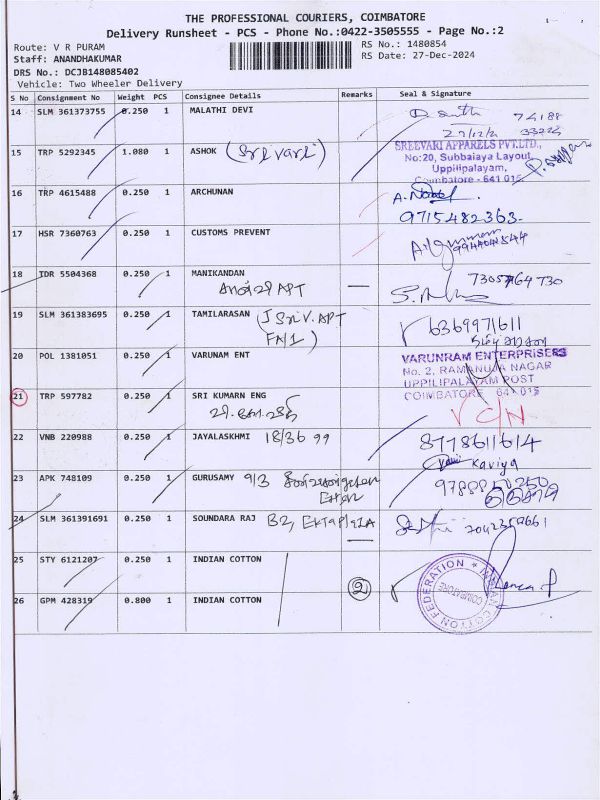 THE PROFESSIONAL COURIERS, COIMBATORE
Delivery Runsheet - PCS - Phone No.:0422-3505555 - Page No.:2
Route: V R PURAM
RS No.: 1480854
Staff: ANANDHAKUMAR
RS Date: 27-Dec-2024
DRS No.: DCJB148085402
Vehicle: Two Wheeler Delivery
S No Consignment No Weight PCS Consignee Details Remarks Seal & Signature
14 SLM 361373755 0.250 1 MALATHI DEVI
15 TRP 5292345 1.080 1 ASHOK (Sri vari)
SREEVARI APPARELS PVT.LTD.,
No:20, Subbaiaya Layout,
Uppilipalayam,
Coimbatore - 641 015
16 TRP 4615488 0.250 1 ARCHUNAN
9715482363-
17 HSR 7360763 0.250 1 CUSTOMS PREVENT
18 IDR 5504368 0.250 1 MANIKANDAN
APT
19 SLM 361383695 0.250 1 TAMILARASAN (J Sri V. APT
FA/1) 6369971611
20 POL 1381051 0.250 1 VARUNAM ENT
VARUNRAM ENTERPRISERS
No. 2, RAMANUJA NAGAR
UPPILIPALAYAM POST
COIMBATORE 641 015
21 TRP 597782 0.250 1 SRI KUMARN ENG
V C/N
22 VNB 220988 0.250 1 JAYALASKHMI 18/36 99 8778611614
Kaviya
23 APK 748109 0.250 1 GURUSAMY 9/3
24 SLM 361391691 0.250 1 SOUNDARA RAJ B2, EKTAPlaZA
25 STY 6121207 0.250 1 INDIAN COTTON
26 GPM 428319 0.800 1 INDIAN COTTON 2
INDIAN COTTON FEDERATION
COIMBATORE